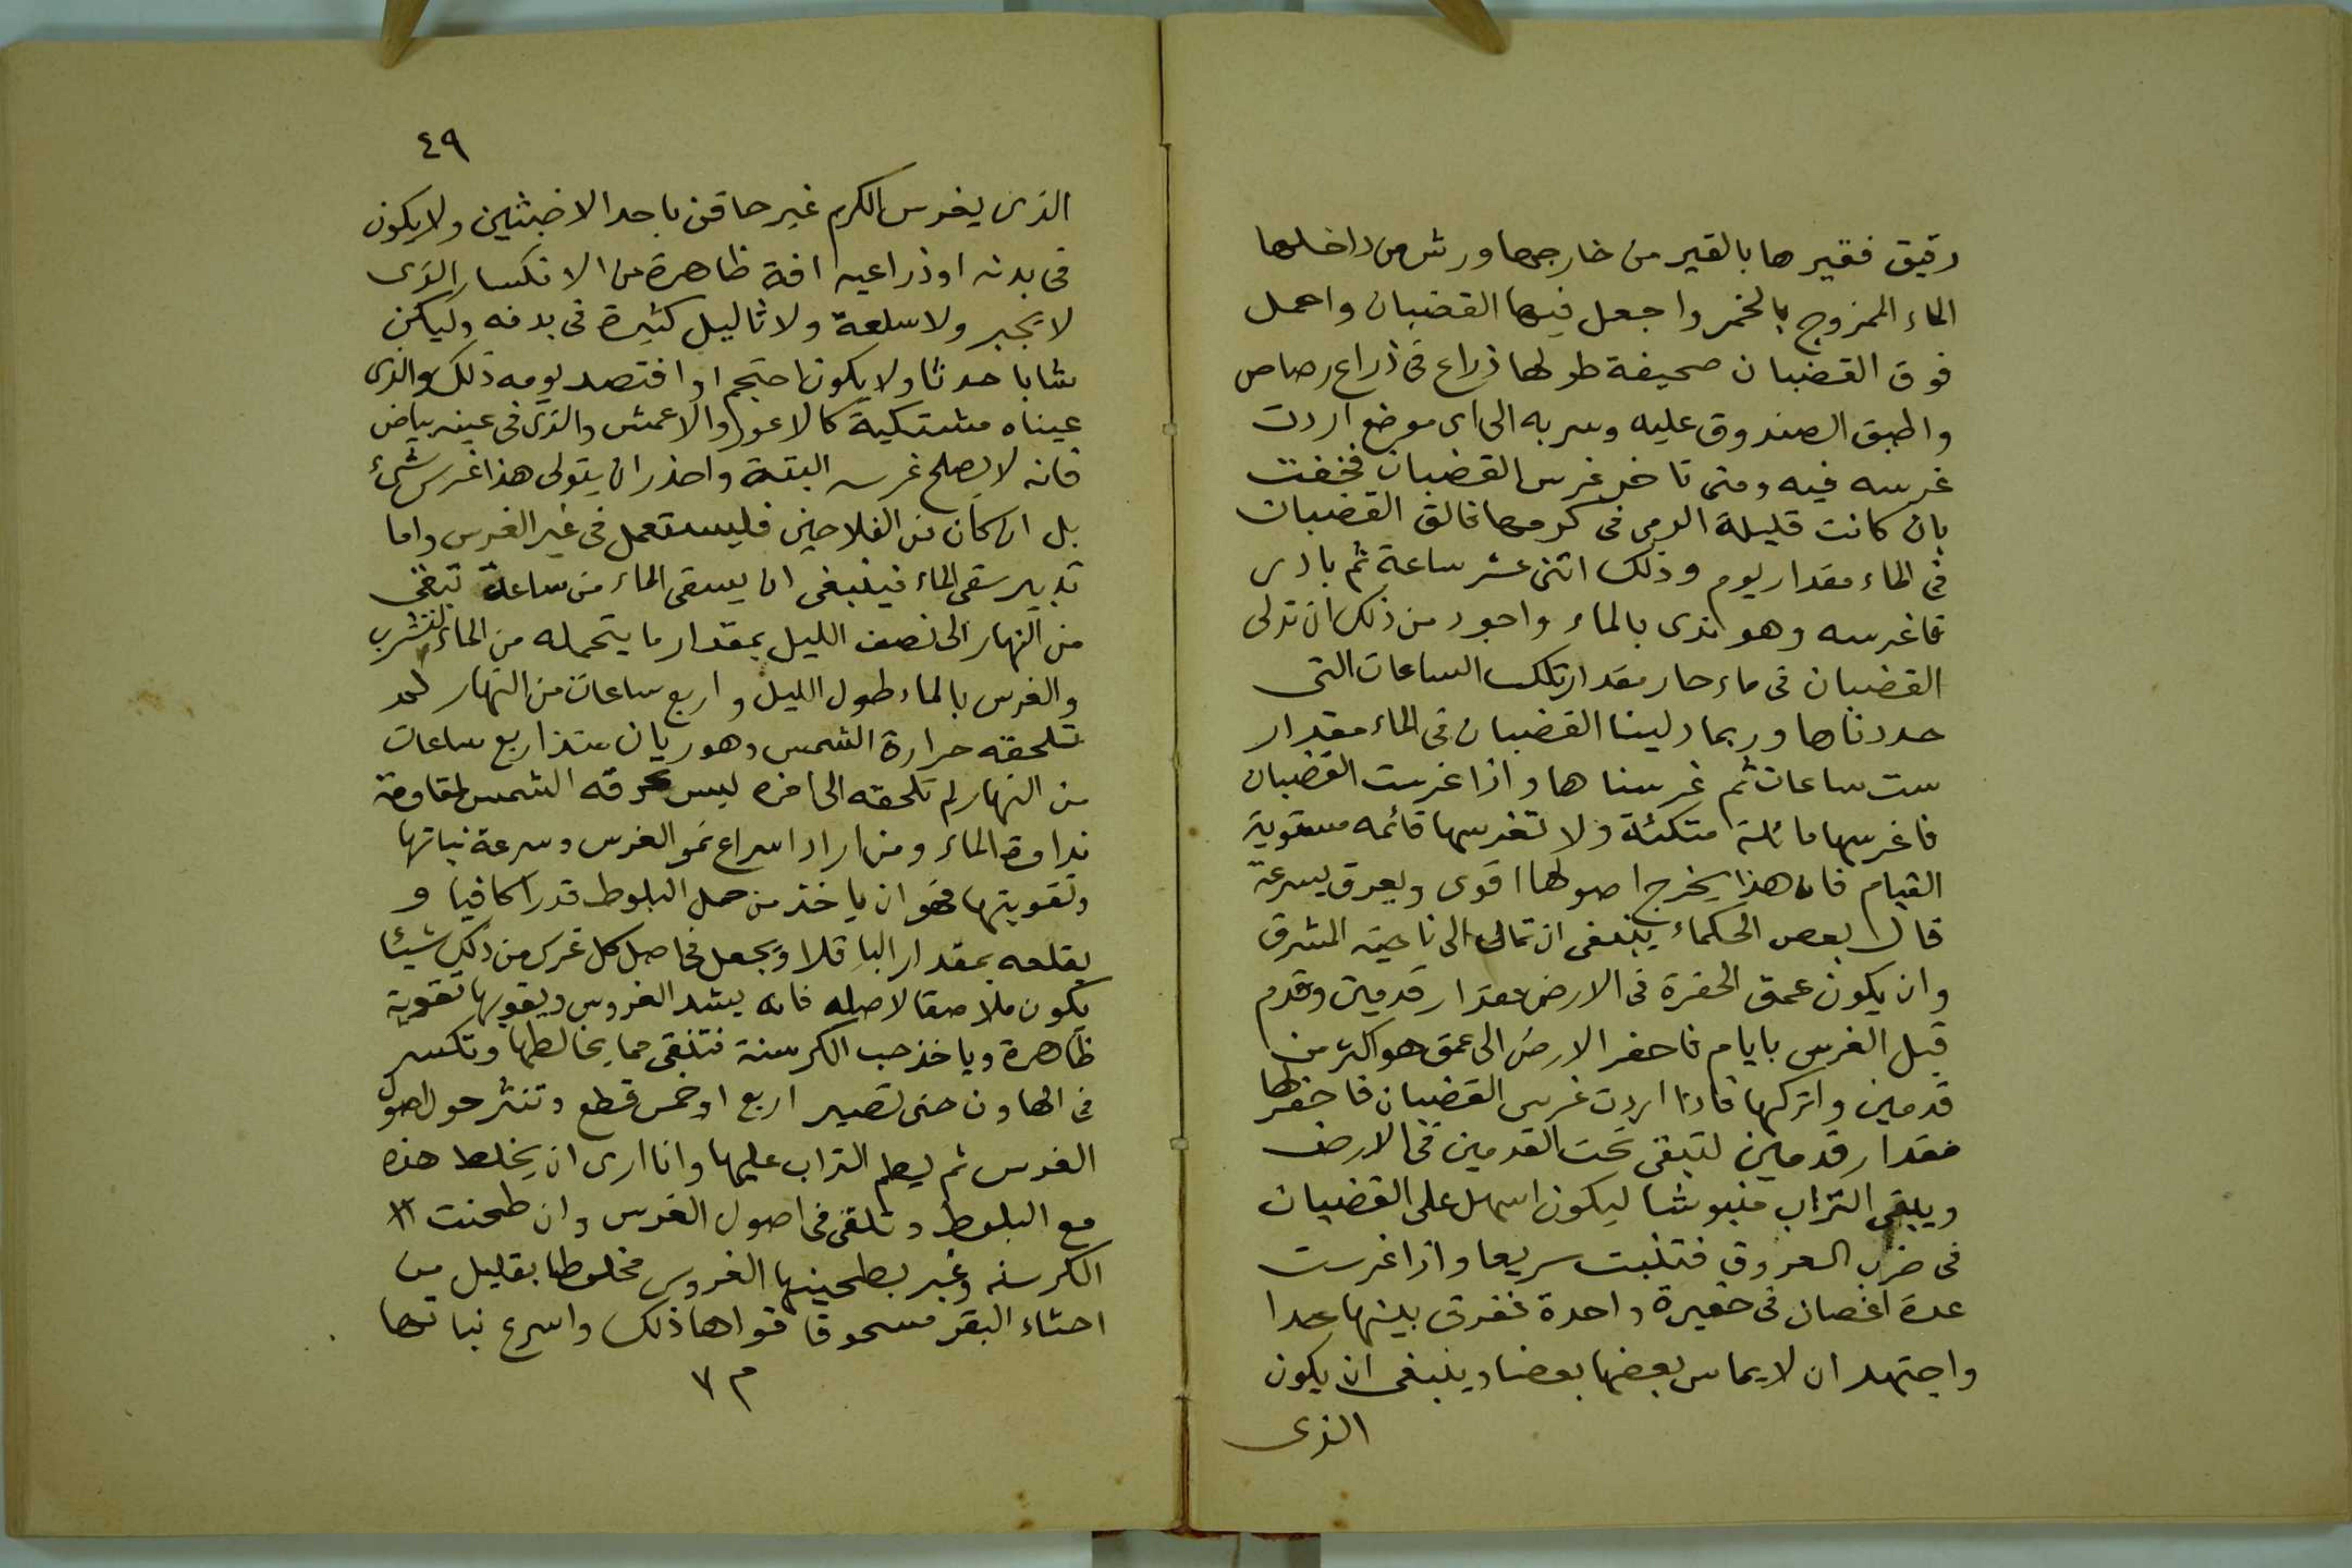 دقيق فقيرها بالقير من خارجها ورش من داخلها
الماء الممزوج بالخمر واجعل فيها القضبان واحمل
فوق القضبان صحيفة طولها ذراع فى ذراع رصاص
واطبق الصندوق عليه وسر به الى اى موضع اردت
غرسه فيه ومتى تاخر غرس القضبان فخفت
بان كانت قليلة الرمى فى كرمها فالق القضبان
فى الماء مقدار يوم وذلك اثنى عشر ساعة ثم بادى
فاغرسه وهو ندى بالماء واجود من ذلك ان تدلى
القضبان فى ماء حار مقدار تلك الساعات التى
حددناها وربما دلينا القضبان فى الماء مقدار
ست ساعات ثم غرسناها واذا غرست القضبان
فاغرسها مائلة متكئة ولا تغرسها قائمه مستوية
القيام فان هذا يخرج اصولها اقوى ويعرق بسرعة
قال بعض الحكماء ينبغى ان تمال الى ناحية المشرق
وان يكون عمق الحفرة فى الارض مقدار قدمين وقدم
قبل الغرس بايام فاحفر الارض الى عمق هو اكثر من
قدمين واتركها فاذا اردت غرس القضبان فاحفر لها
مقدار قدمين لتبقى تحت القدمين فى الارض
ويبقى التراب منبوشا ليكون اسهل على القضبان
فى ضرب العروق فتنبت سريعا واذا غرست
عدة اغصان فى حفيرة واحدة ففرق بينها عمدا
واجتهد ان لا يماس بعضها بعضا وينبغى ان يكون
الذى
٤٩
الذى يغرس الكرم غير حاقن باحد الاخبثين ولا يكون
فى بدنه او ذراعيه افة ظاهرة من الانكسار الذى
لا يجبر ولا سلعة ولا ثاليل كثيرة فى بدنه وليكن
شابا حدثا ولا يكون احتجم او افتصد يومه ذلك والذى
عيناه مشتكية كالاعور والاعمش والذى فى عينه بياض
فانه لا يصلح غرسه البتة واحذر ان يتولى هذا غرس شىء
بل ان كان من الفلاحين فليستعمل فى غير الغرس واما
تدبير سقى الماء فينبغى ان يسقى الماء من ساعة تبقى
من النهار الى نصف الليل بمقدار ما يتحمله من الماء لتشرب
والغرس بالماء طول الليل واربع ساعات من النهار
تلحقه حرارة الشمس وهو ريان منذ اربع ساعات
من النهار لم تلحقه الى اخره ليس تحرقه الشمس لمقاومة
نداوة الماء ومن اراد اسراع نمو الغرس وسرعة نباتها
وتقويتها فهو ان ياخذ من حمل البلوط قدرا كافيا و
يقلعه بمقدار الباقلا ويجعل فى اصل كل غرس من ذلك شيئا
يكون ملاصقا لاصله فانه يشد الغروس ويقويها تقوية
ظاهرة وياخذ حب الكرسنة فتنقى مما يخالطها وتكسر
فى الهاون حتى تصير اربع او خمس قطع وتنثر حول اصول
الغرس ثم يطم التراب عليها وانا ارى ان يخلط هذه
مع البلوط وتلقى فى اصول الغرس وان طحنت
الكرسنه وغبر بطحينها الغروس مخلوطا بقليل من
احثاء البقر مسحوقا قواها ذلك واسرع نباتها
م ٧